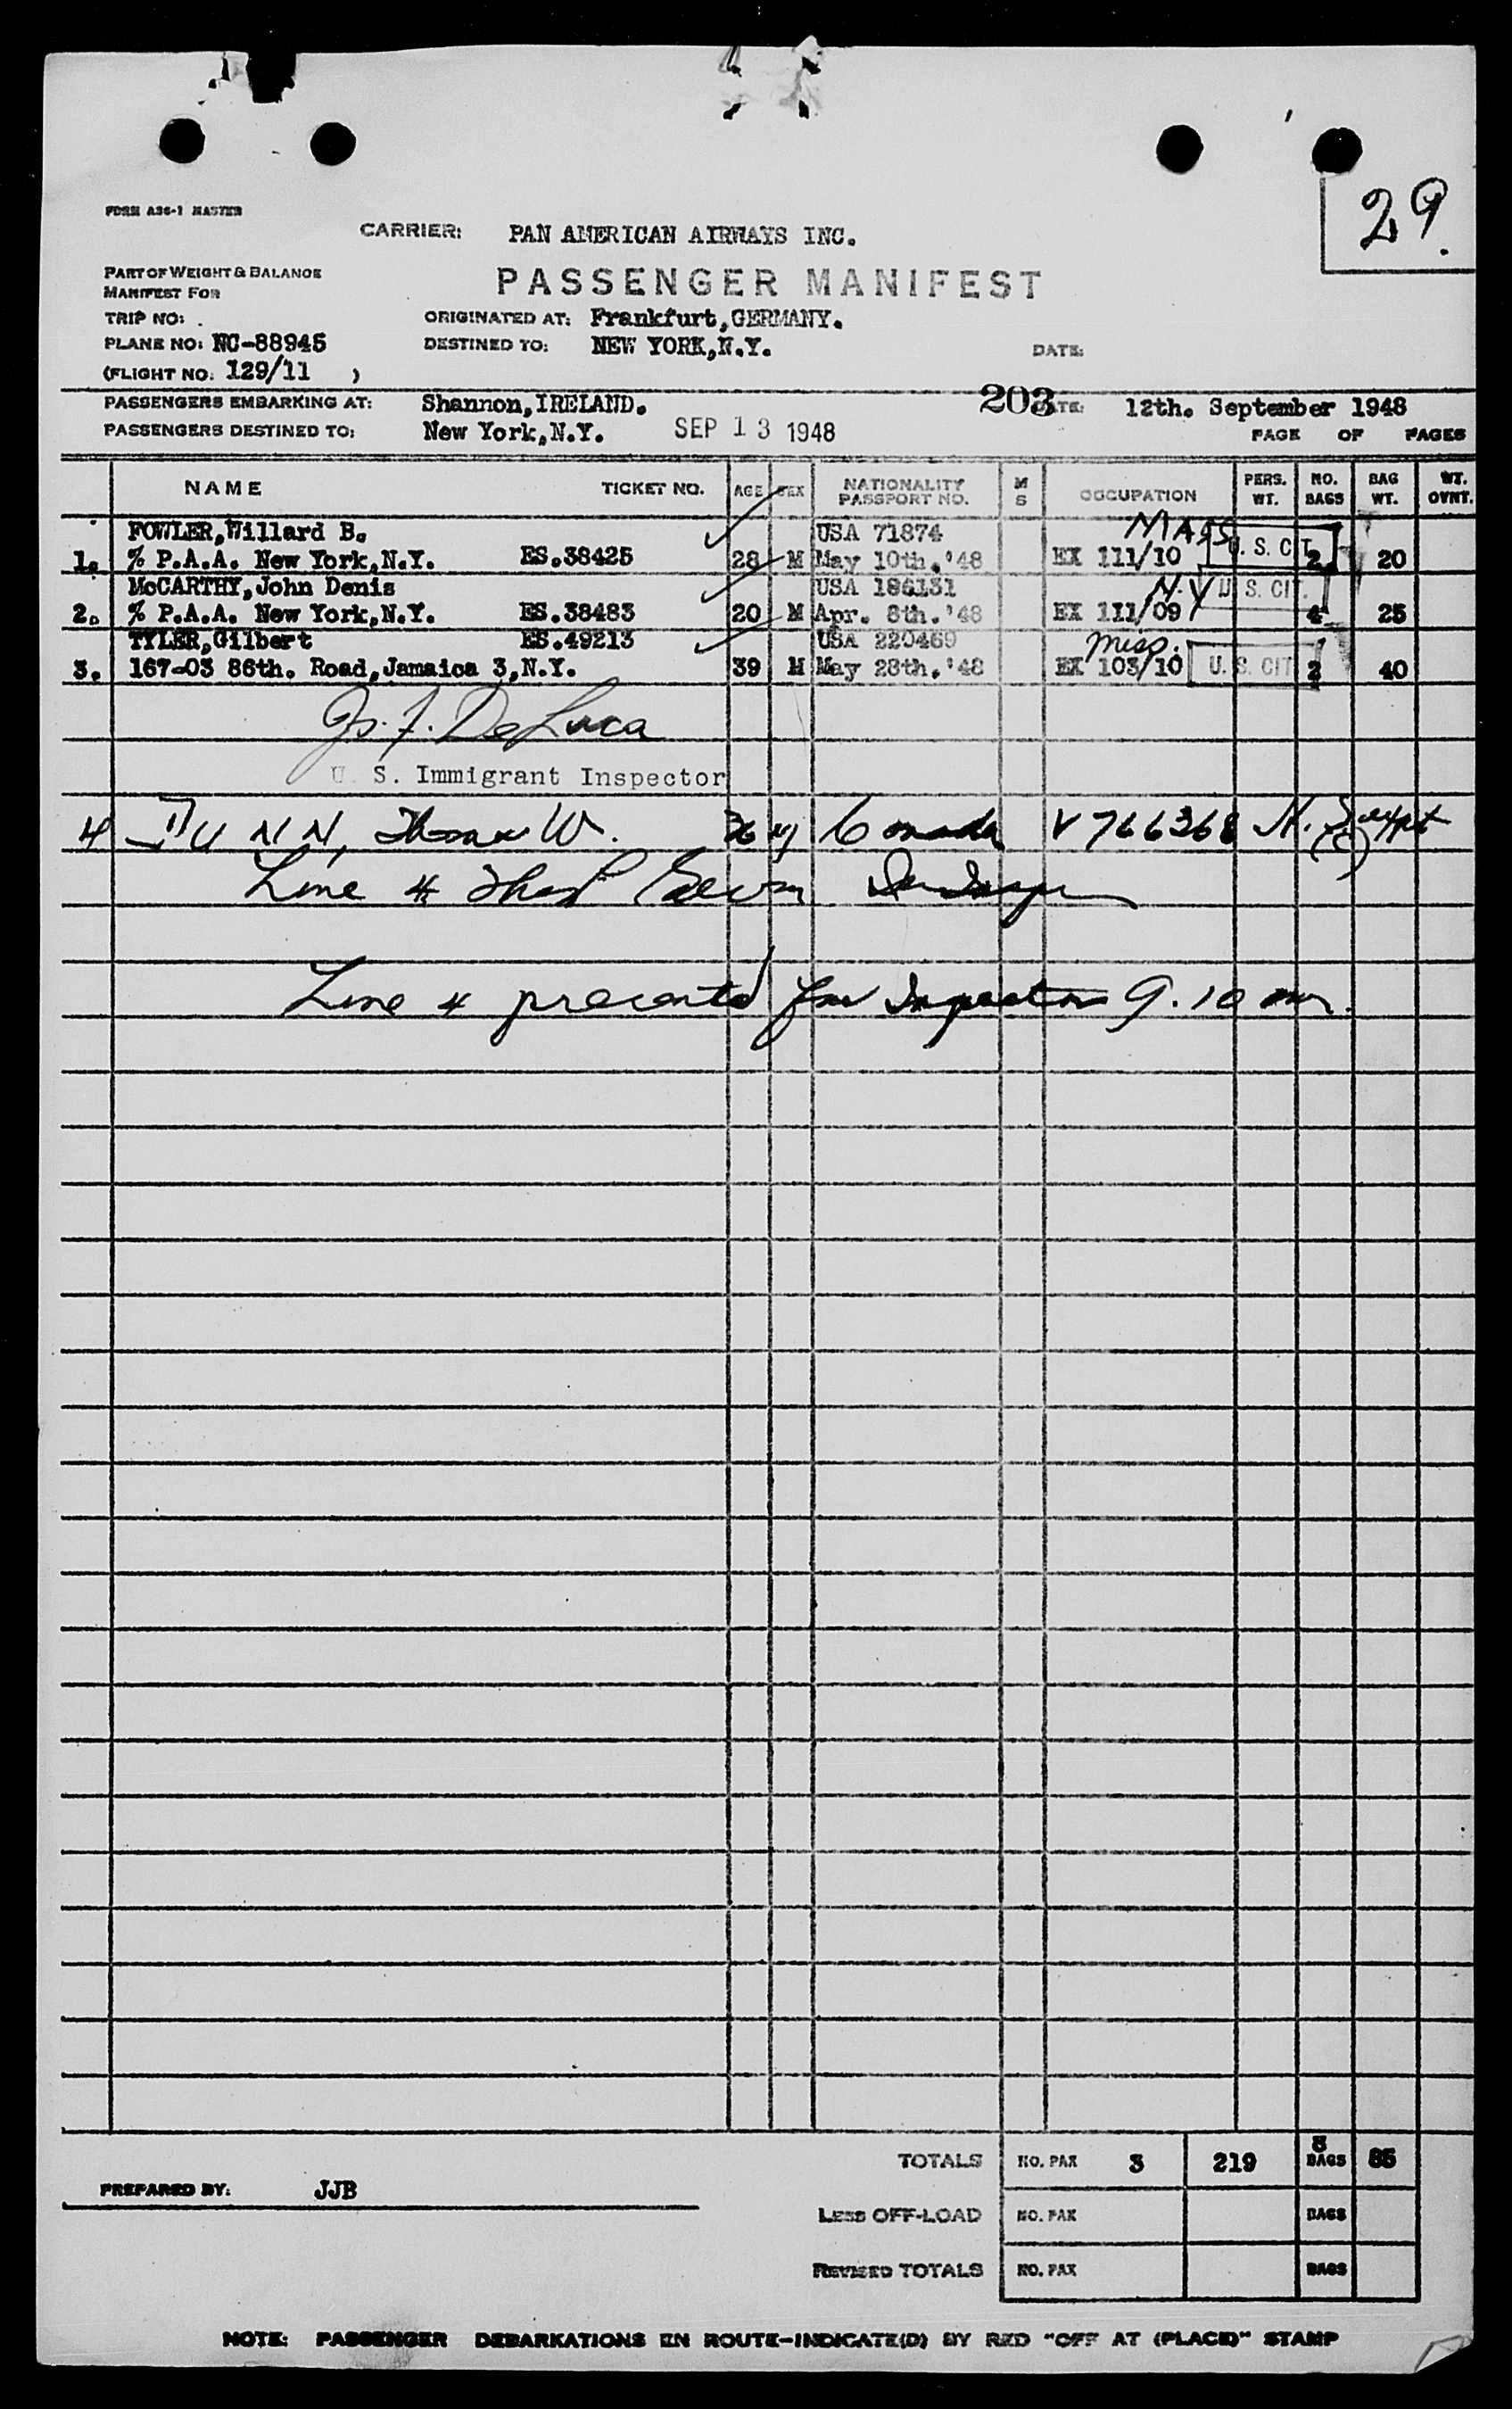 29.
FORM A36-1 MASTER
CARRIER: PAN AMERICAN AIRWAYS INC.
PART OF WEIGHT & BALANCE
MANIFEST FOR
PASSENGER MANIFEST
TRIP NO: .
ORIGINATED AT: Frankfurt,GERMANY.
PLANE NO: NC-88945
DESTINED TO: NEW YORK,N.Y.
DATE:
(FLIGHT NO. 129/11 )
PASSENGERS EMBARKING AT: Shannon,IRELAND. 203 DATE: 12th. September 1948
PASSENGERS DESTINED TO: New York,N.Y. SEP 13 1948 PAGE OF PAGES
NAME TICKET NO. AGE SEX NATIONALITY PASSPORT NO. M S OCCUPATION PERS. WT. NO. BAGS BAG WT. WT. OVNT.
FOWLER,Willard B. USA 71874 MASS
1. % P.A.A. New York,N.Y. ES.38425 28 M May 10th.'48 EX 111/10 U. S. CIT. 2 20
McCARTHY,John Denis USA 186131 N.Y U. S. CIT.
2. % P.A.A. New York,N.Y. ES.38483 20 M Apr. 8th.'48 EX 111/09 4 25
TYLER,Gilbert ES.49213 USA 220469 Miss.
3. 167-03 86th. Road,Jamaica 3,N.Y. 39 M May 28th.'48 EX 103/10 U. S. CIT 2 40
Js. F. DeLuca
U. S. Immigrant Inspector
4 DUNN, Thomas W. 36 M Canada V766368
Line 4
Line 4 presented for Inspection 9.10 am.
TOTALS NO. PAX 3 219 8 BAGS 85
PREPARED BY: JJB
LESS OFF-LOAD NO. PAX BAGS
REVISED TOTALS NO. PAX BAGS
NOTE: PASSENGER DEBARKATIONS EN ROUTE-INDICATE(D) BY RED "OFF AT (PLACE)" STAMP